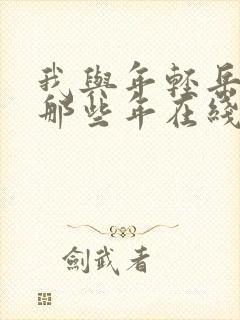 我與年輕岳
那些年在綫
劍武者